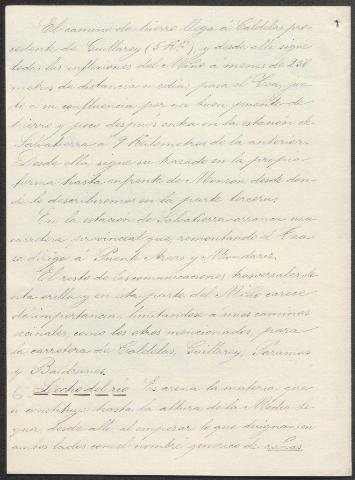 El camino de hierro llega á Caldelas pro-
cedente de Guillarey (5 K.s), y desde allí sigue
todas las inflexiones del Miño á menos de 250
metros de distancia media; pasa el Tea, jun-
to á su confluencia por un buen puente de
hierro y poco después entra en la estacion de
Salvatierra á 9 Kilometros de la anterior.
Desde ella sigue su trazado en la propia
forma hasta enfrente de Monzon desde don-
de le describiremos en la parte tercera.
En la estacion de Salvatierra arranca una
carretera, provincial que, remontando el Tea
se dirige á Puente Areas y Mondariz.
El resto de las comunicaciones trasversales de
esta orilla y en esta parte del Miño carece
de importancia, limitandose á unos caminos
vecinales, como los otros mencionados, para
la carretera de Caldelas, Guillarey, Paramos
y Baldranes.
6. Lecho del rio Es arena la materia que
le constituye hasta la altura de la Media le-
gua; desde allí, al empezar lo que designan en
ambos lados con el nombre generico de rañas